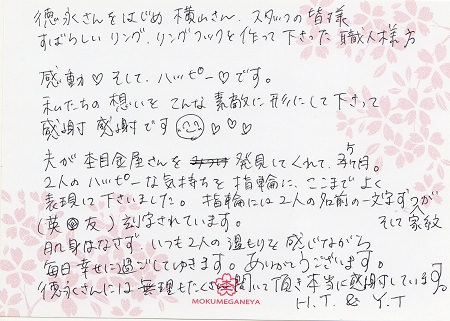 徳永さんをはじめ 横山さん、スタッフの皆様
すばらしい リング、リングフックを作って下さった 職人様方
感動♡ そして、ハッピー♡です。
私たちの 想いを こんな 素敵に 形にして 下さって
感謝 感謝です ♡♡♡
夫が 杢目金屋さんを 発見してくれて、3ヶ月。
2人の ハッピーな気持ちを 指輪に、ここまで よく
表現して下さいました。 指輪には 2人の名前の一文字ずつが
(英 友) 刻字されています。
そして 家紋
肌身はなさず、いつも2人の 温もりを 感じながら
毎日 幸せに過ごしてゆきます。ありがとうございます。
徳永さんには 無理もたくさん聞いて頂き 本当に感謝しています。
MOKUMEGANEYA
H.T. & Y.T